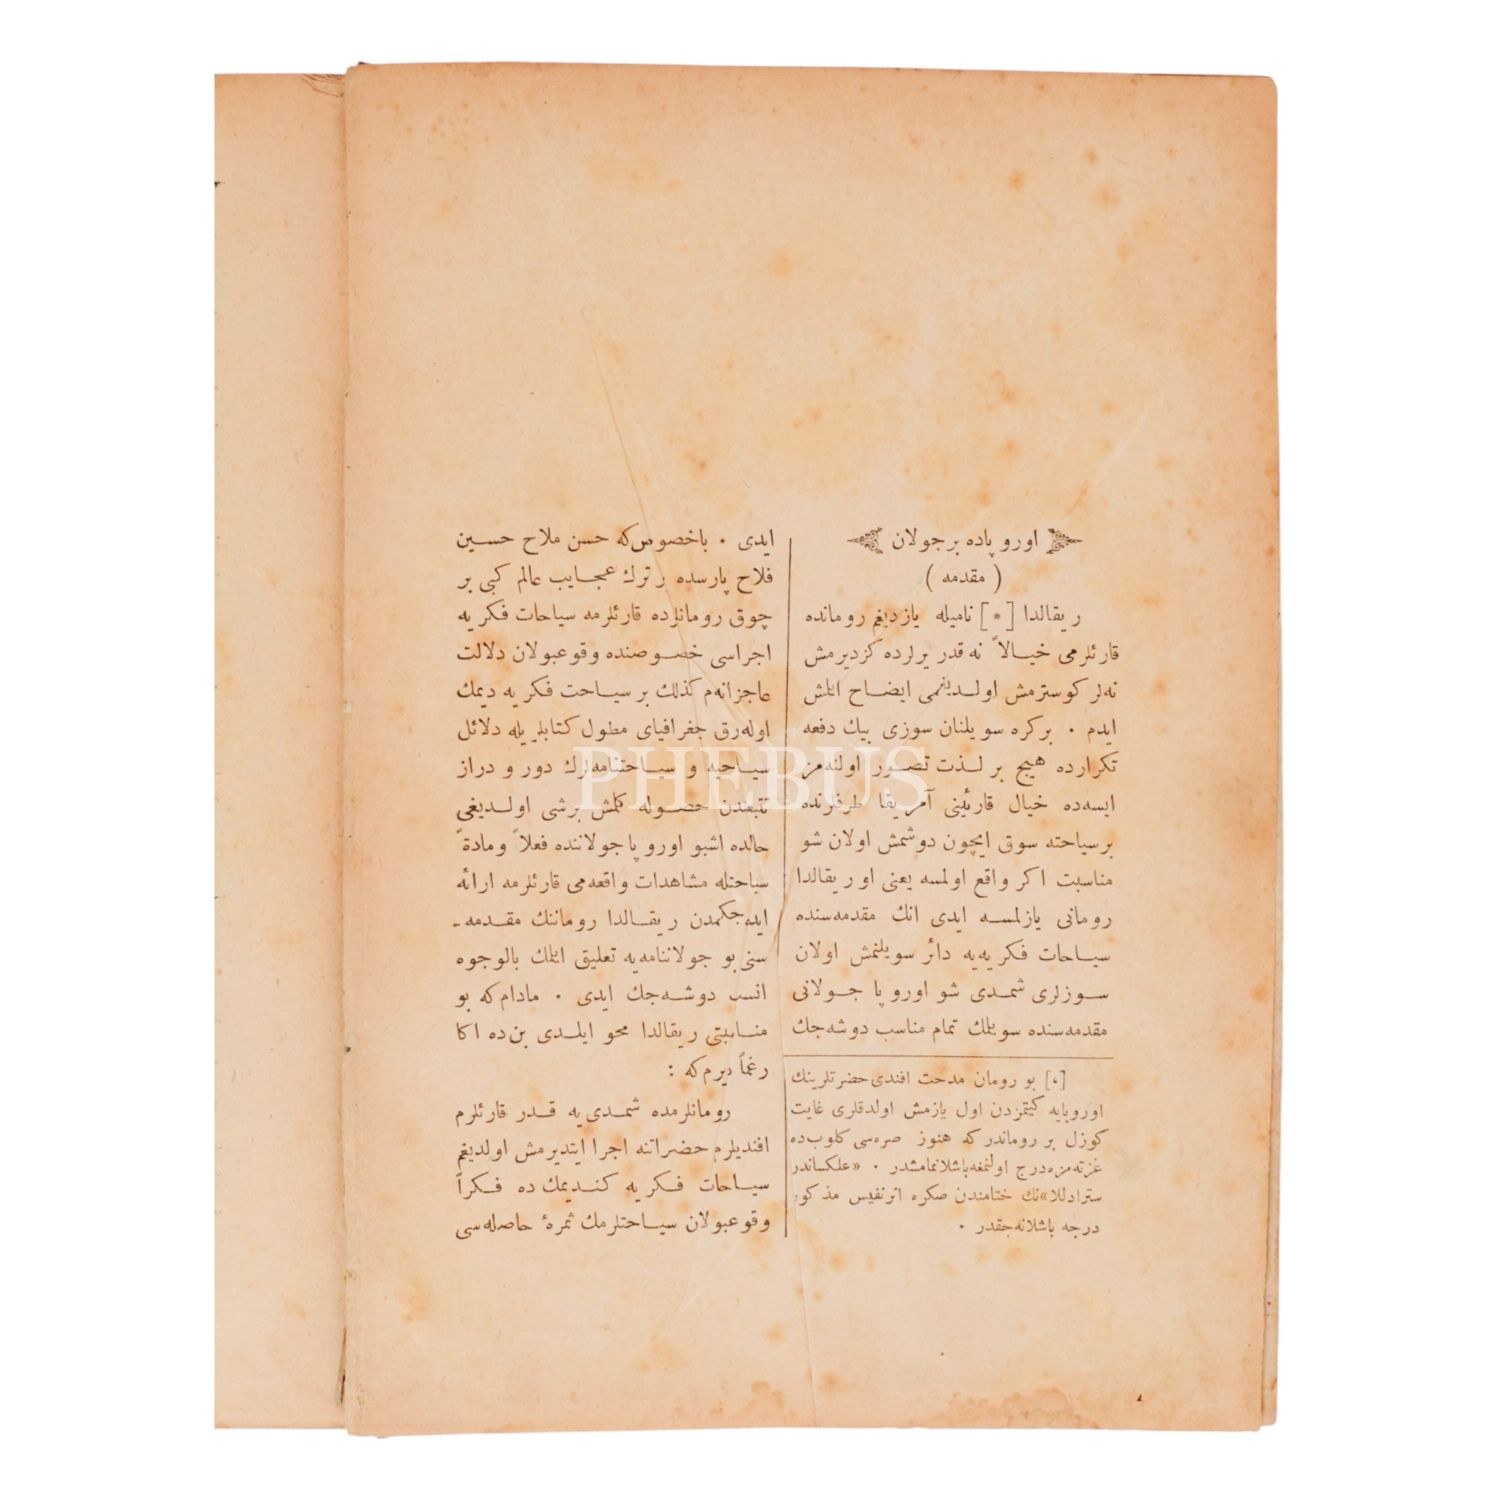 اوروپاده برجولان
( مقدمه )
ریقالدا [*] نامیله یازدیغم رومانده
قارئلرمی خیالاً نه قدر یرلرده کزدیرمش
نه‌لر کوسترمش اولدیغمی ایضاح ایتمش
ایدم . برکره سویلنان سوزی بیك دفعه
تکرارده هیچ بر لذت تصور اولنه‌مز
ایسه‌ده خیال قارئینی آمریقا طرفلرنده
برسیاحته سوق ایچون دوشمش اولان شو
مناسبت اکر واقع اولمسه یعنی او ریقالدا
رومانی یازلمسه ایدی انك مقدمه‌سنده
سیاحات فکریه‌یه دائر سویلنمش اولان
سوزلری شمدی شو اوروپا جولانی
مقدمه‌سنده سویلمك تمام مناسب دوشه‌جك
[*] بو رومان مدحت افندی حضرتلرینك
اوروپایه کیتمزدن اول یازمش اولدقلری غایت
کوزل بر روماندر که هنوز صره‌سی کلوب‌ده
غزته‌مزه درج اولنمغه باشلانمامشدر . «علکساندر
سترادللا»نك ختامندن صکره اثر نفیس مذکور
درجه باشلانه‌جقدر .
ایدی . باخصوص‌که حسن ملاح حسین
فلاح پارسده بر ترك عجایب عالم کبی بر
چوق رومانلرده قارئلرمه سیاحات فکریه
اجراسی خصوصنده وقوعبولان دلالت
عاجزانه‌م کذلك بر سیاحت فکریه دیمك
اوله‌رق جغرافیای مطول کتابلریله دلائل
سیاحیه و سیاحتنامه‌لرك دور و دراز
تتبعندن حصوله کلمش برشی اولدیغی
حالده اشبو اوروپا جولاننده فعلاً ومادةً
سیاحتله مشاهدات واقعه‌می قارئلرمه ارائه
ایده‌جکمدن ریقالدا روماننك مقدمه‌-
سنی بو جولاننامه‌یه تعلیق ایتمك بالوجوه
انسب دوشه‌جك ایدی . مادام‌که بو
مناسبتی ریقالدا محو ایلدی بن‌ده اکا
رغماً دیرم‌که :
رومانلرمده شمدی‌یه قدر قارئلرم
افندیلرم حضراتنه اجرا ایتدیرمش اولدیغم
سیاحات فکریه کندیمك ده فکراً
وقوعبولان سیاحتلرمك ثمرهٔ حاصله‌سی
PHEBUS